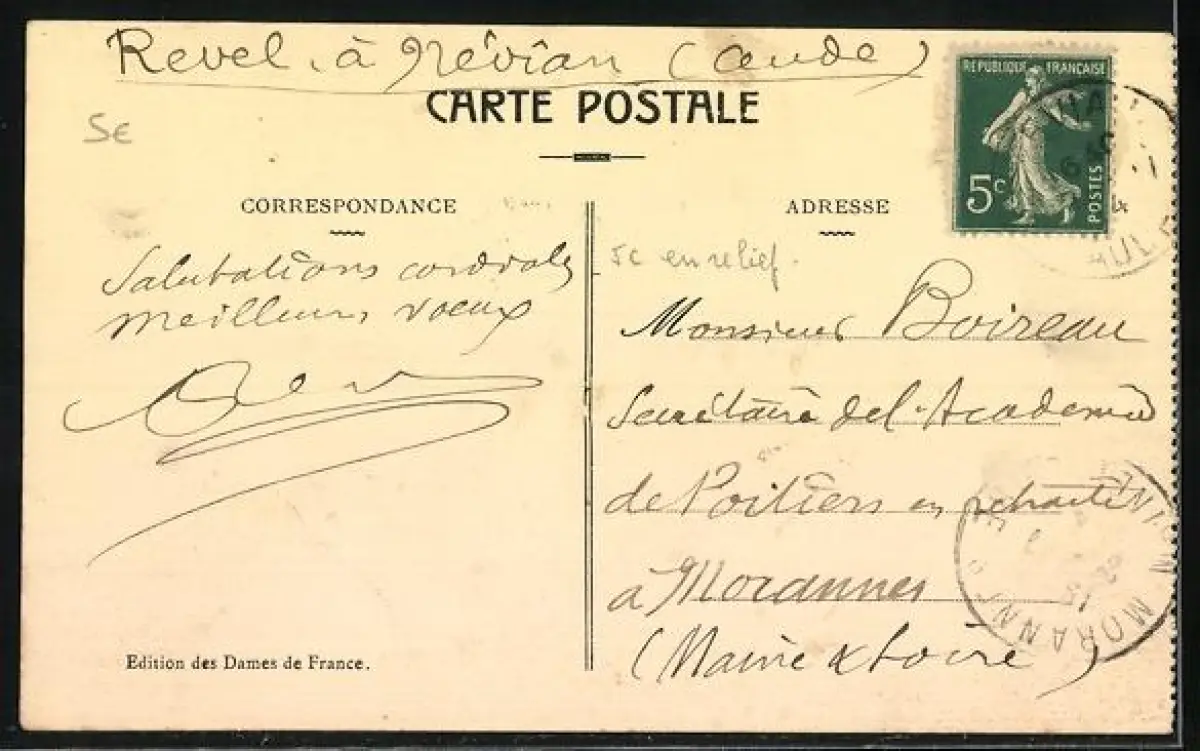 Revel, à Névian (Aude)
CARTE POSTALE
5c
RÉPUBLIQUE FRANÇAISE
5c
POSTES
CORRESPONDANCE
Salutations cordiales
meilleurs voeux
ADRESSE
5c en relief.
Monsieur Boireau
Secrétaire de l'Académie
de Poitiers en retraite
à Morannes
(Maine & Loire)
MORANNES
Edition des Dames de France.